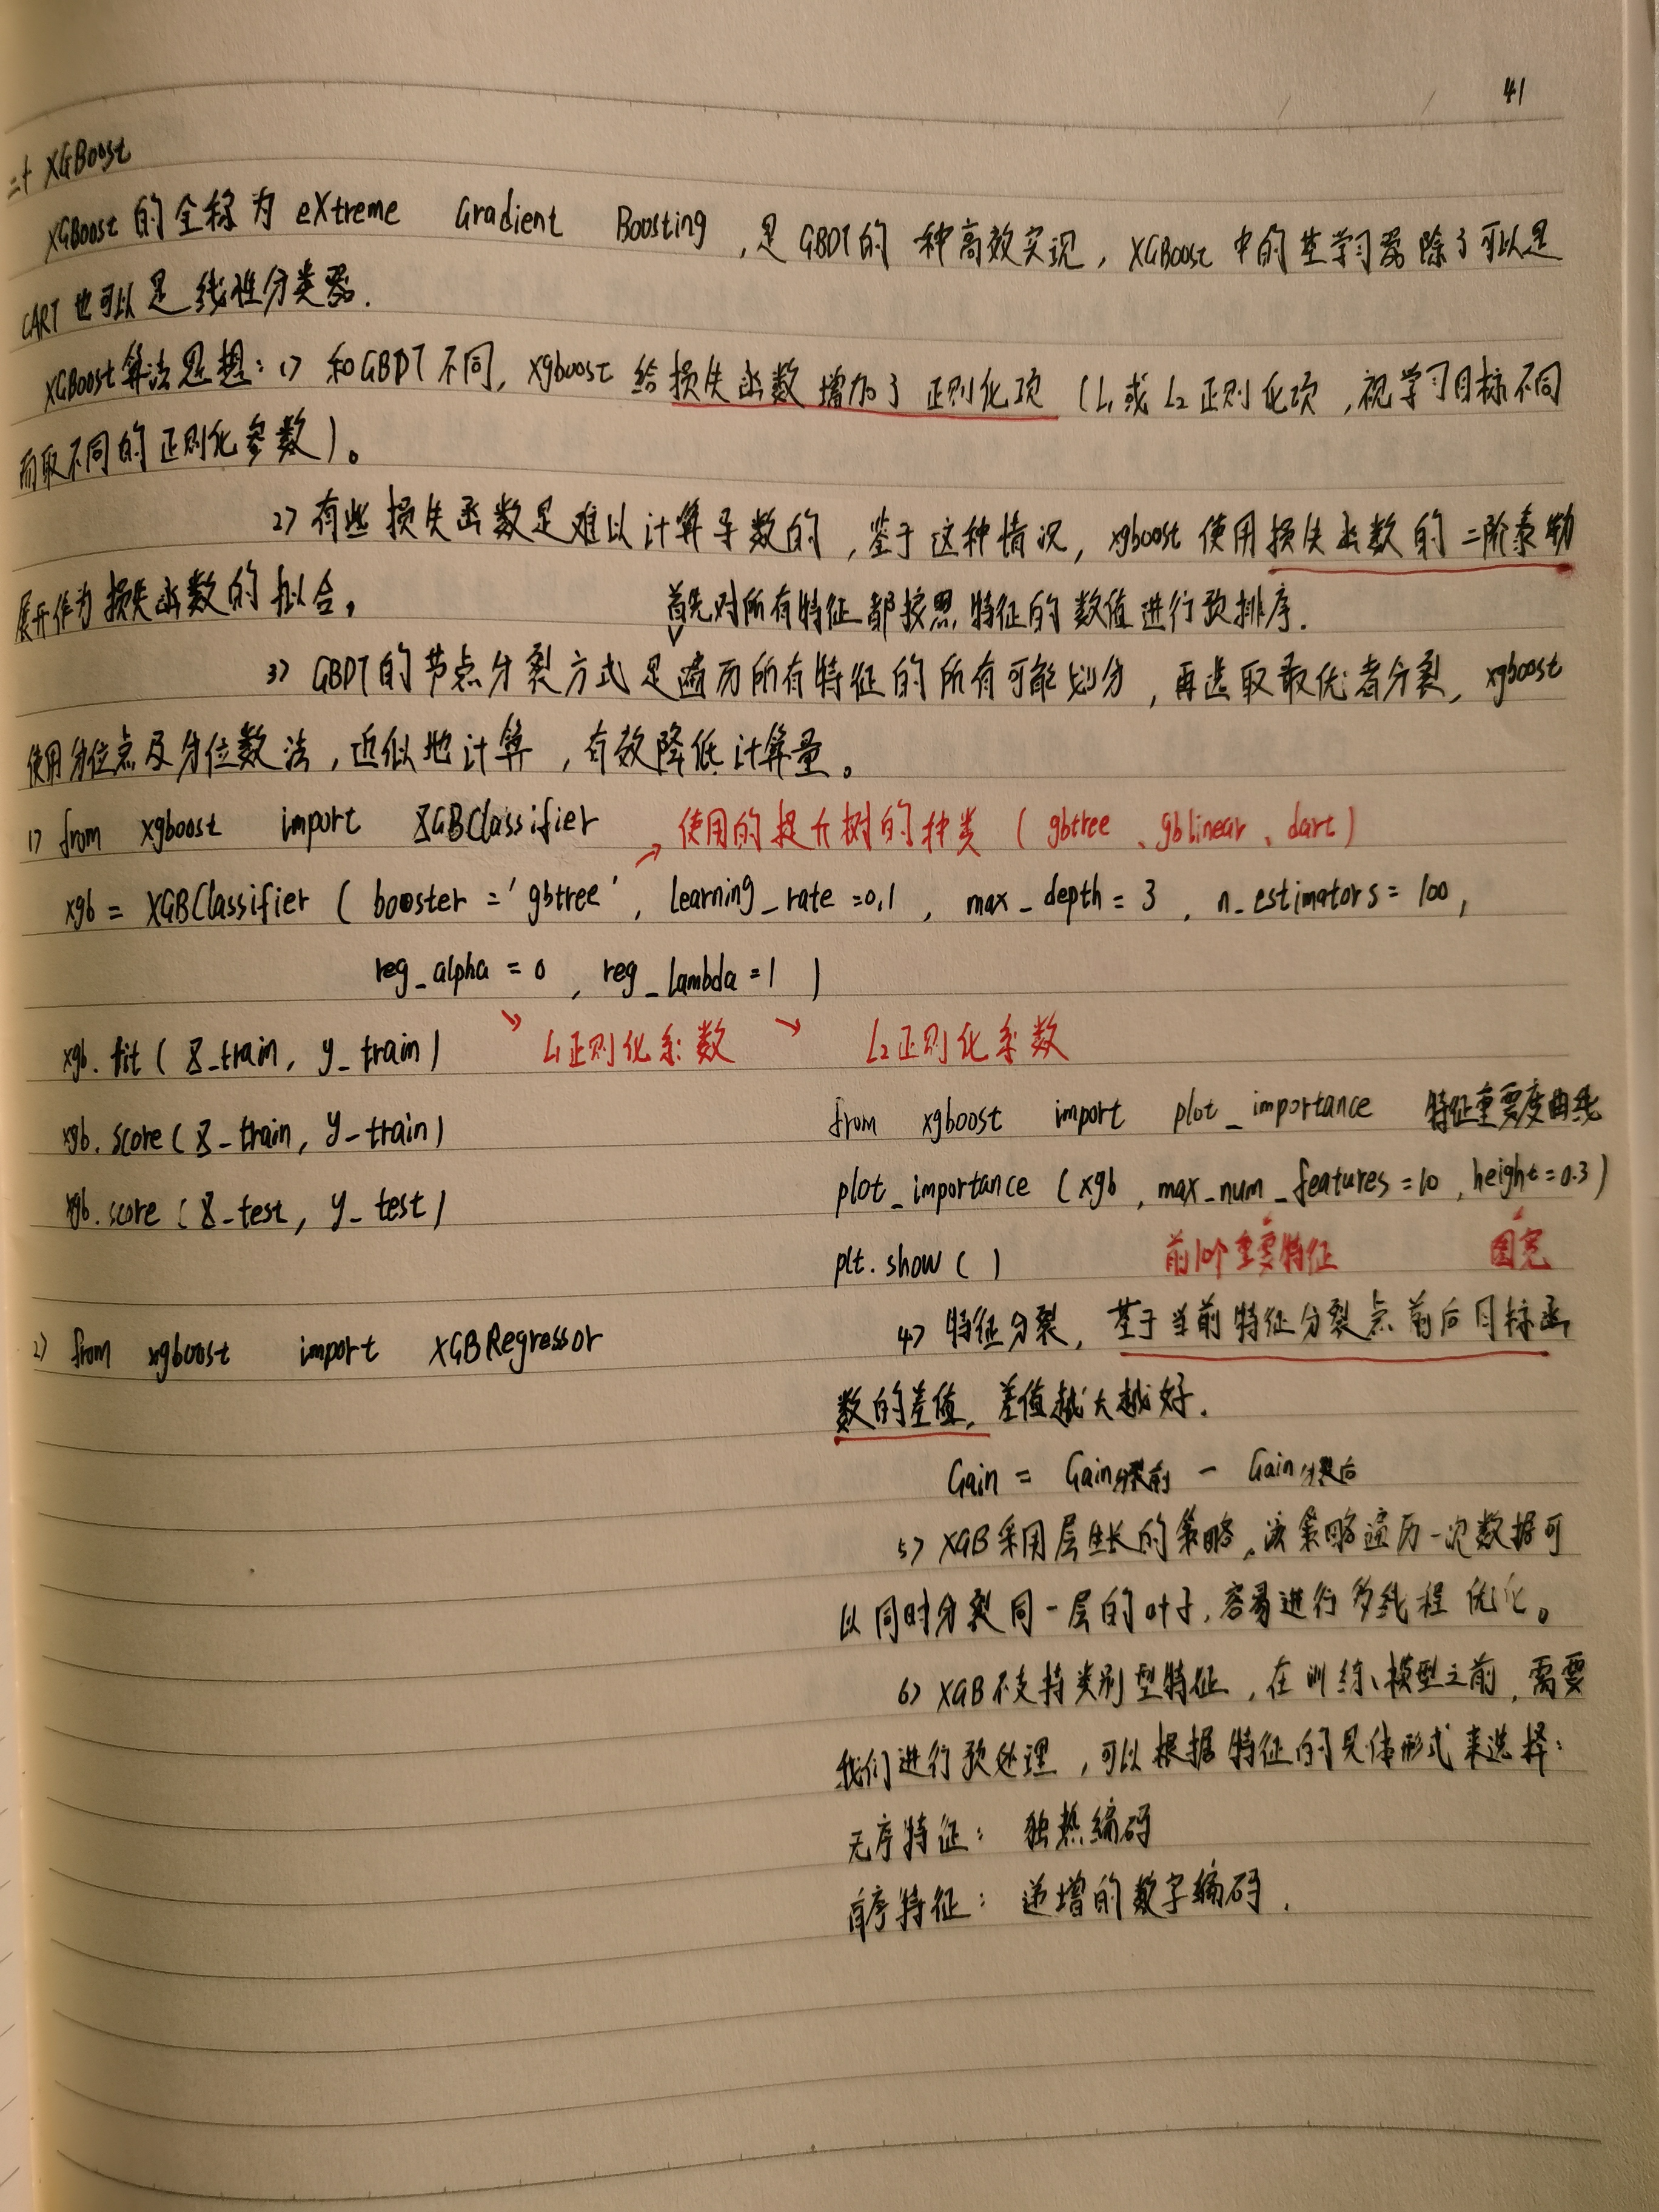 41
二十 XGBoost
XGBoost的全称为 eXtreme Gradient Boosting ,是GBDT的一种高效实现, XGBoost 中的基学习器除了可以是
CART 也可以是线性分类器.
XGBoost算法思想: 1) 和GBDT不同, xgboost 给损失函数增加了正则化项 (L1或L2正则化项,视学习目标不同
而取不同的正则化参数)。
2) 有些损失函数是难以计算导数的,鉴于这种情况, xgboost 使用损失函数的二阶泰勒
展开作为损失函数的拟合。
首先对所有特征都按照特征的数值进行预排序.
3) GBDT的节点分裂方式是遍历所有特征的所有可能划分,再选取最优者分裂, xgboost
使用分位点及分位数法,近似地计算,有效降低计算量。
1) from xgboost import XGBClassifier
使用的提升树的种类 ( gbtree、gblinear、dart)
xgb = XGBClassifier ( booster = 'gbtree' , learning_rate =0.1 , max_depth = 3 , n_estimators = 100 ,
reg_alpha = 0 , reg_lambda = 1 )
L1正则化系数 L2正则化系数
xgb. fit ( X_train, y_train)
xgb. score ( X_train, y_train)
xgb. score ( X_test, y_test)
from xgboost import plot_importance 特征重要度曲线
plot_importance (xgb , max_num_features = 10 , height = 0.3)
plt. show ( )
前10个重要特征 图宽
2) from xgboost import XGBRegressor
4) 特征分裂, 基于当前特征分裂点前后目标函
数的差值, 差值越大越好.
Gain = Gain分裂前 - Gain分裂后
5) XGB采用层生长的策略,该策略遍历一次数据可
以同时分裂同一层的叶子,容易进行多线程优化。
6) XGB不支持类别型特征,在训练模型之前,需要
我们进行预处理,可以根据特征的具体形式来选择:
无序特征: 独热编码
有序特征: 递增的数字编码.